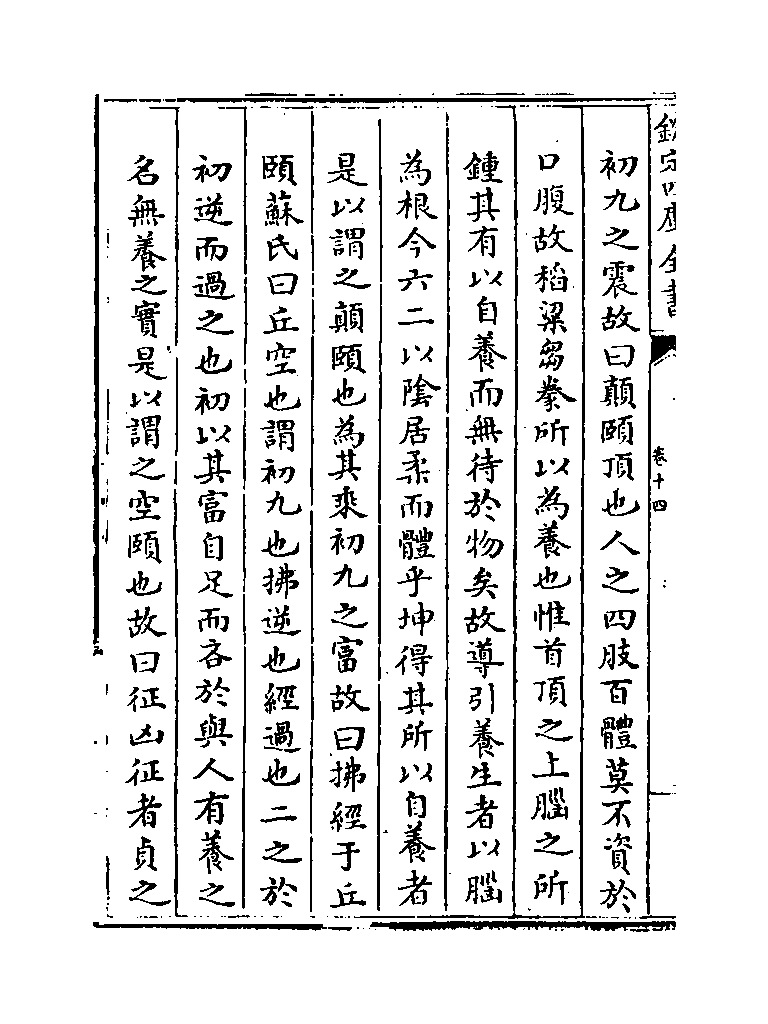 欽定四庫全書
卷十四
初九之震故曰顛頤頂也人之四肢百體莫不資於
口腹故稻粱芻豢所以為養也惟首頂之上腦之所
鍾其有以自養而無待於物矣故導引養生者以腦
為根今六二以陰居柔而體乎坤得其所以自養者
是以謂之顛頤也為其乘初九之富故曰拂經于丘
頤蘇氏曰丘空也謂初九也拂逆也經過也二之於
初逆而過之也初以其富自足而吝於與人有養之
名無養之實是以謂之空頤也故曰征凶征者貞之